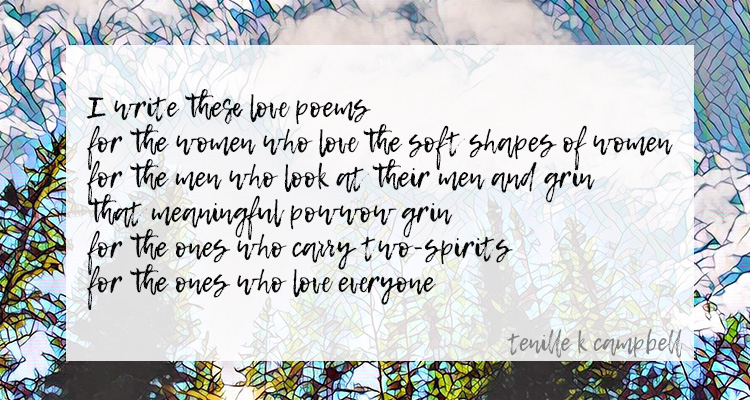 I write these love poems
for the women who love the soft shapes of women
for the men who look at their men and grin
that meaningful powwow grin
for the ones who carry two-spirits
for the ones who love everyone
tenille k campbell